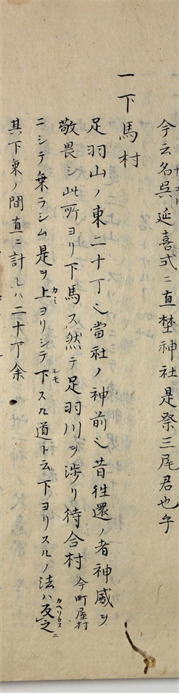 今云名呉延喜式ニ直埜神社是祭三尾君也乎
一下馬村
足羽山ノ東二十丁也當社ノ神前也昔往還ノ者神威ヲ
敬畏シ此所ヨリ下馬ス然テ足羽川ヲ渉リ待合村今町屋村
ニシテ乗ラシム是ヲ上カミヨリシテ下シモスル道ト云下ヨリスルノ法ハ反之カヘリウスニ
其下乗ノ間直ニ計レハ二十丁余